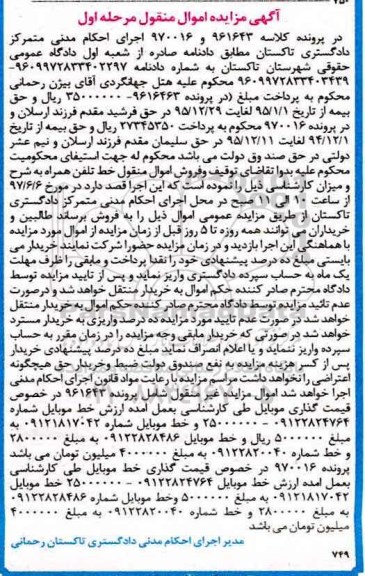 آگهی مزایده اموال منقول مرحله اول
در پرونده کلاسه ۹۶۱۶۴۳ و ۹۷۰۰۱۶ اجرای احکام مدنی متمرکز
دادگستری تاکستان مطابق دادنامه صادره از شعبه اول دادگاه عمومی
حقوقی شهرستان تاکستان به شماره دادنامه ۹۶۰۹۹۷۲۸۳۳۴۰۲۲۹۷-
۹۶۰۹۹۷۲۸۳۳۴۰۳۴۳۹ محکوم علیه هتل جهانگردی آقای بیژن رحمانی
محکوم به پرداخت مبلغ (در پرونده ۹۶۱۶۴۶۳- ۳۵۰۰۰۰۰۰ ریال و حق
بیمه از تاریخ ۹۵/۱/۱ لغایت ۹۵/۱۲/۲۹ در حق فرشید مقدم فرزند ارسلان و
در پرونده ۹۷۰۰۱۶ محکوم به پرداخت ۲۷۳۴۵۳۵۰ ریال و حق بیمه از تاریخ
۹۴/۱۲/۱ لغایت ۹۵/۱۲/۱۱ در حق سلیمان مقدم فرزند ارسلان و نیم عشر
دولتی در حق صندوق دولت می باشد محکوم له جهت استیفای محکومیت
محکوم علیه بدوا تقاضای توقیف وفروش اموال منقول خط تلفن همراه به شرح
و میزان کارشناسی ذیل را نموده است که این اجرا قصد دارد در مورخ ۹۷/۶/۶
از ساعت ۱۰ الی ۱۱ صبح در محل اجرای احکام مدنی متمرکز دادگستری
تاکستان از طریق مزایده عمومی اموال ذیل را به فروش برساند طالبین و
خریداران می توانند همه روزه تا ۵ روز قبل از زمان مزایده از اموال مورد مزایده
با هماهنگی این اجرا بازدید و در زمان مزایده حضورا شرکت نمایند خریدار می
بایستی مبلغ ده درصد پیشنهادی خود را نقدا پرداخت و مابقی را ظرف مهلت
یک ماه به حساب سپرده دادگستری واریز نماید و پس از تایید مزایده توسط
دادگاه محترم صادر کننده حکم اموال به خریدار منتقل خواهد شد و درصورت
عدم تائید مزایده توسط دادگاه محترم صادر کننده حکم اموال به خریدار منتقل
خواهد شد در صورت عدم تایید مورد مزایده ده درصد واریزی به خریدار مسترد
خواهد شد در صورتی که خریدار مابقی وجه مزایده را در زمان مقرر به حساب
سپرده واریز ننماید و یا اعلام انصراف نماید مبلغ ده درصد پیشنهادی خریدار
پس از کسر هزینه مزایده به نفع صندوق دولت ضبط وخریدار حق هیچگونه
اعتراضی را نخواهد داشت مراسم مزایده با رعایت مواد قانون اجرای احکام مدنی
اجرا خواهد شد اموال مزایده غیر منقول شامل پرونده ۹۶۱۶۴۳ در خصوص
قیمت گذاری موبایل طی کارشناسی بعمل امده ارزش خط موبایل شماره
۰۹۱۲۲۸۲۴۷۶۴ - ۲۵۰۰۰۰۰۰ و خط موبایل شماره ۰۹۱۲۱۸۱۷۰۴۲ به
مبلغ ۵۰۰۰۰۰۰ ریال و خط موبایل ۰۹۱۲۲۸۲۸۴۸۶ به مبلغ ۲۸۰۰۰۰۰
و خط شماره ۰۹۱۲۲۸۲۰۰۴۰ به مبلغ ۴۰۰۰۰۰۰ میلیون تومان می باشد
پرونده ۹۷۰۰۱۶ در خصوص قیمت گذاری خط موبایل طی کارشناسی
بعمل امده ارزش خط موبایل ۰۹۱۲۲۸۲۴۷۶۴ - ۲۵۰۰۰۰۰۰ خط موبایل
۰۹۱۲۱۸۱۷۰۴۲ به مبلغ ۵۰۰۰۰۰۰ وخط موبایل شماره ۰۹۱۲۲۸۲۸۴۸۶
به مبلغ ۲۸۰۰۰۰۰ و خط شماره ۰۹۱۲۲۸۲۰۰۴۰ به مبلغ ۴۰۰۰۰۰۰
میلیون تومان می باشد
مدیر اجرای احکام مدنی دادگستری تاکستان رحمانی
۷۴۹